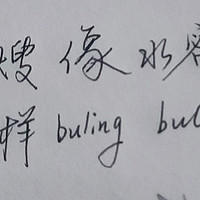 像水
样 buling bul